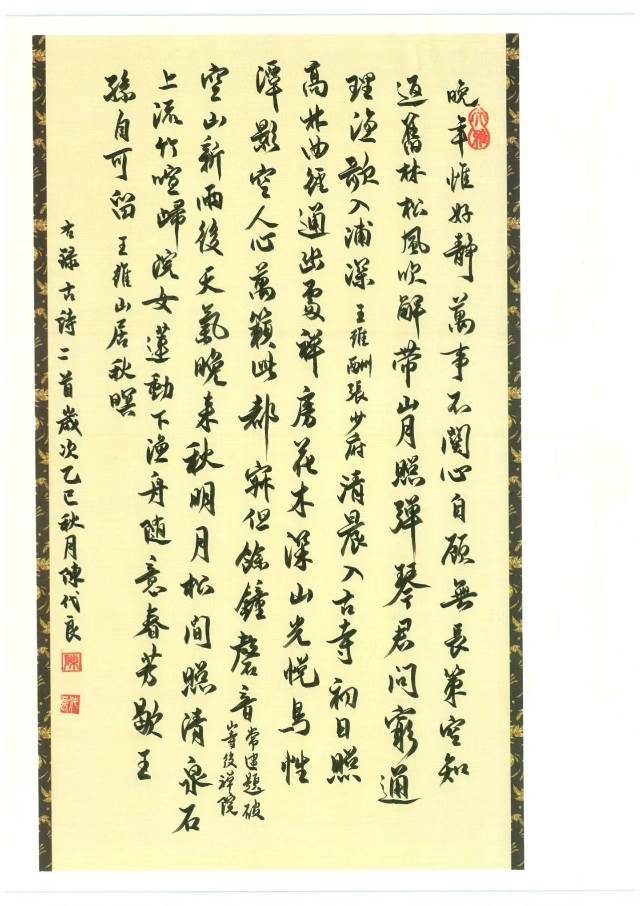 晚年惟好静萬事不関心自顧無長策空知
返舊林松風吹解帶山月照彈琴君問窮通
理漁歌入浦深 王維酬張少府 清晨入古寺初日照
高林曲徑通幽處禅房花木深山光悦鳥性
潭影空人心萬籟此都寂但餘鐘磬音 常建題破
山寺後禅院
空山新雨後天氣晚来秋明月松間照清泉石
上流竹喧歸浣女蓮動下漁舟随意春芳歇王
孫自可留 王維山居秋暝
右録古詩二首歲次乙巳秋月陳代良
陳